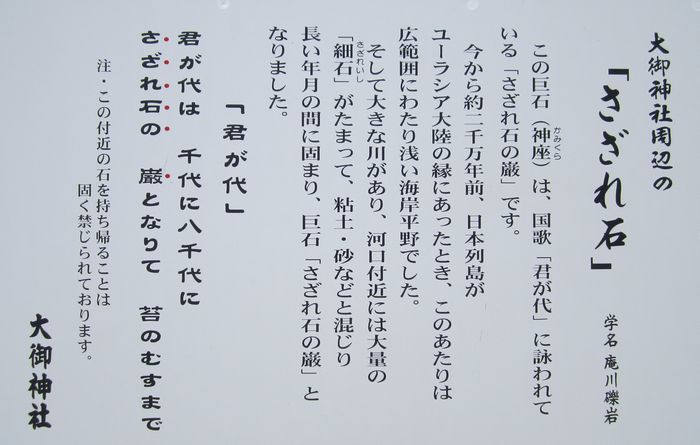 大御神社周辺の
「さざれ石」
学名 庵川礫岩
この巨石（神座）は、国歌「君が代」に詠われて
いる「さざれ石の巌」です。
今から約二千万年前、日本列島が
ユーラシア大陸の縁にあったとき、このあたりは
広範囲にわたり浅い海岸平野でした。
そして大きな川があり、河口付近には大量の
「細石」がたまって、粘土・砂などと混じり
長い年月の間に固まり、巨石「さざれ石の巌」と
なりました。
「君が代」
君が代は 千代に八千代に
さざれ石の 巌となりて 苔のむすまで
注・この付近の石を持ち帰ることは
固く禁じられております。
大御神社
かみくら
さざれいし